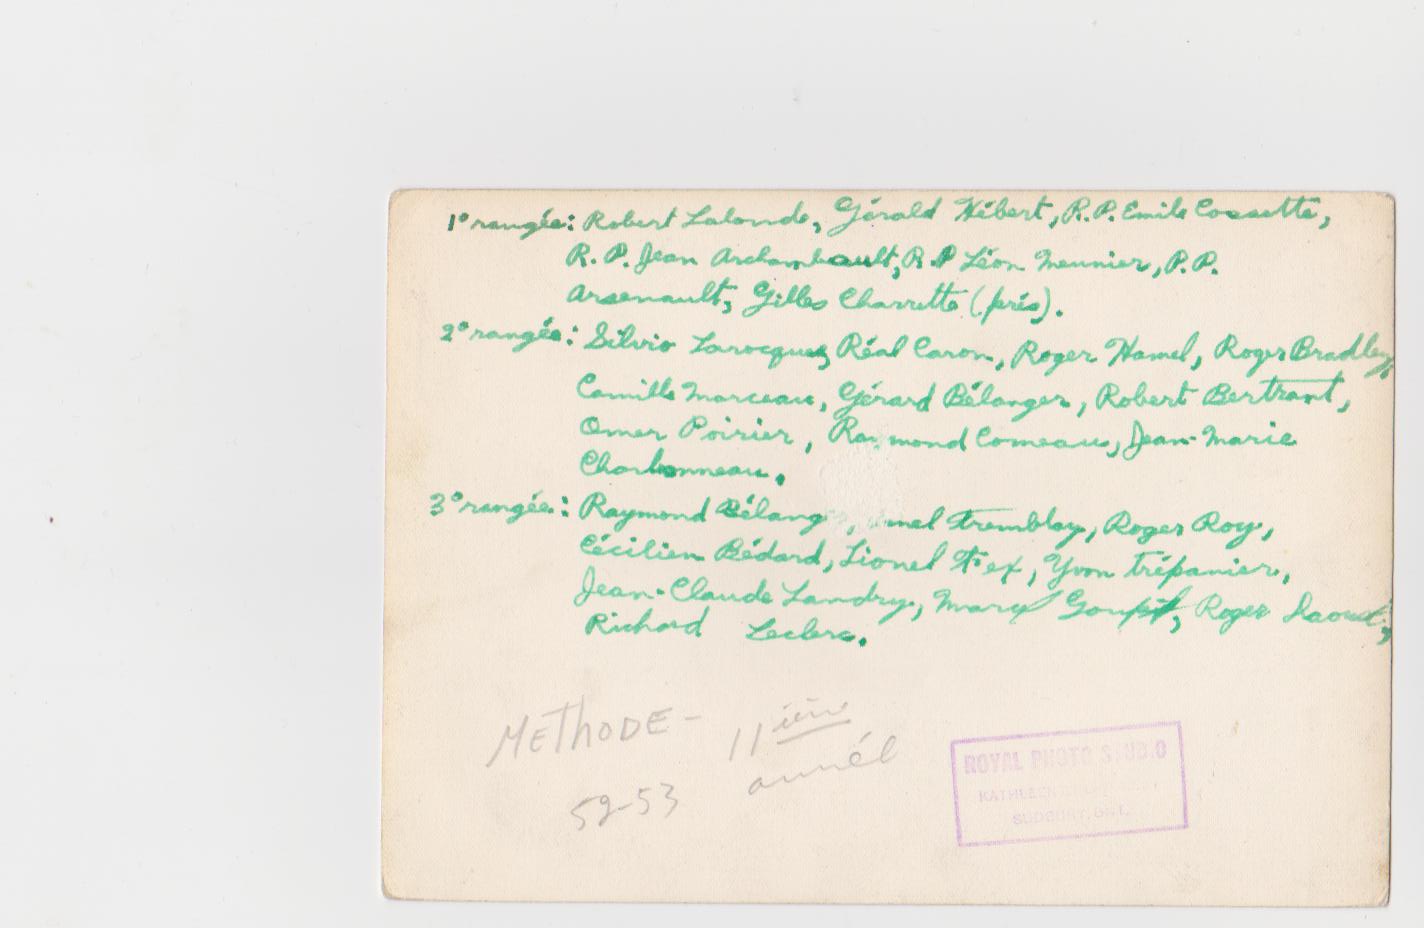 1° rangée: Robert Lalonde, Gérald Hébert, R.P. Emile Cossette,
R.P. Jean Archambault, R.P Léon Meunier, P.P.
Arsenault, Gilles Charrette (prés).
2° rangée: Silvio Larocque, Réal Caron, Roger Hamel, Roger Bradley,
Camille Marceau, Gérard Bélanger, Robert Bertrant,
Omer Poirier, Raymond Comeau, Jean-Marie
Charbonneau.
3° rangée: Raymond Bélang , nel Tremblay, Roger Roy,
Cécilien Bédard, Lionel Yvon Trépanier,
Jean-Claude Landry, Marc Roger Raoul,
Richard Leclerc.
METHODE - 11ième
année
52-53
ROYAL PHOTO STUDIO
KATHLEEN
SUDBURY, ONT.